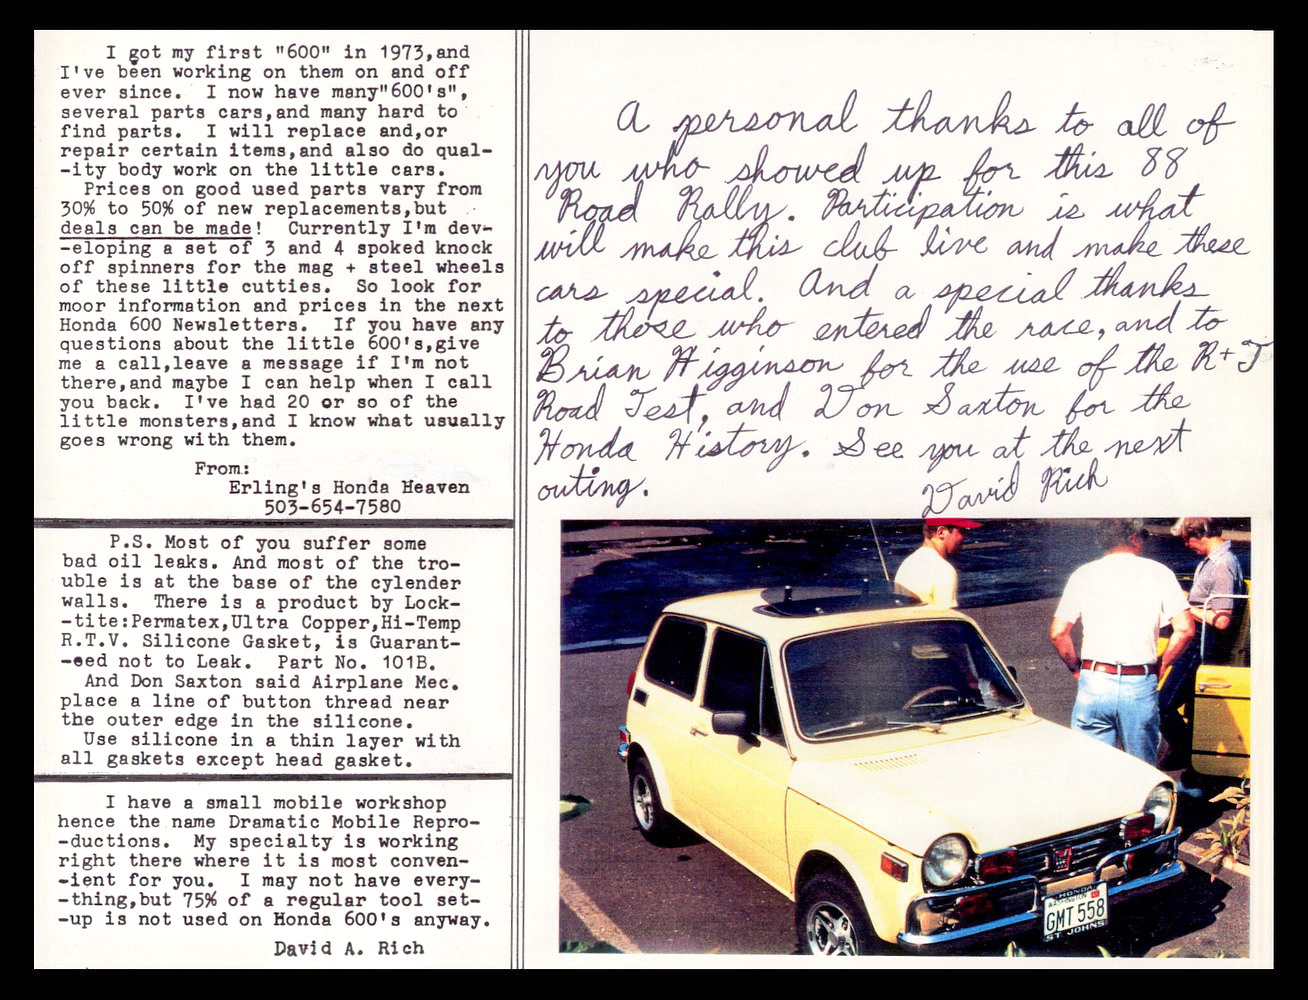 I got my first "600" in 1973,and
I've been working on them on and off
ever since.  I now have many"600's",
several parts cars,and many hard to
find parts.  I will replace and,or
repair certain items,and also do qual-
-ity body work on the little cars.
Prices on good used parts vary from
30% to 50% of new replacements,but
deals can be made!  Currently I'm dev-
-eloping a set of 3 and 4 spoked knock
off spinners for the mag + steel wheels
of these little cutties.  So look for
moor information and prices in the next
Honda 600 Newsletters.  If you have any
questions about the little 600's,give
me a call,leave a message if I'm not
there,and maybe I can help when I call
you back.  I've had 20 or so of the
little monsters,and I know what usually
goes wrong with them.
From:
Erling's Honda Heaven
503-654-7580
P.S. Most of you suffer some
bad oil leaks. And most of the tro-
uble is at the base of the cylender
walls.  There is a product by Lock-
-tite:Permatex,Ultra Copper,Hi-Temp
R.T.V. Silicone Gasket, is Guarant-
-eed not to Leak.  Part No. 101B.
And Don Saxton said Airplane Mec.
place a line of button thread near
the outer edge in the silicone.
Use silicone in a thin layer with
all gaskets except head gasket.
I have a small mobile workshop
hence the name Dramatic Mobile Repro-
-ductions.  My specialty is working
right there where it is most conven-
-ient for you.  I may not have every-
-thing,but 75% of a regular tool set-
-up is not used on Honda 600's anyway.
David A. Rich
A personal thanks to all of
you who showed up for this 88
Road Rally. Participation is what
will make this club live and make these
cars special. And a special thanks
to those who entered the race, and to
Brian Higginson for the use of the R+T
Road Test, and Don Saxton for the
Honda History. See you at the next
outing.
David Rich
HONDA
WASHINGTON
GMT 558
ST JOHNS